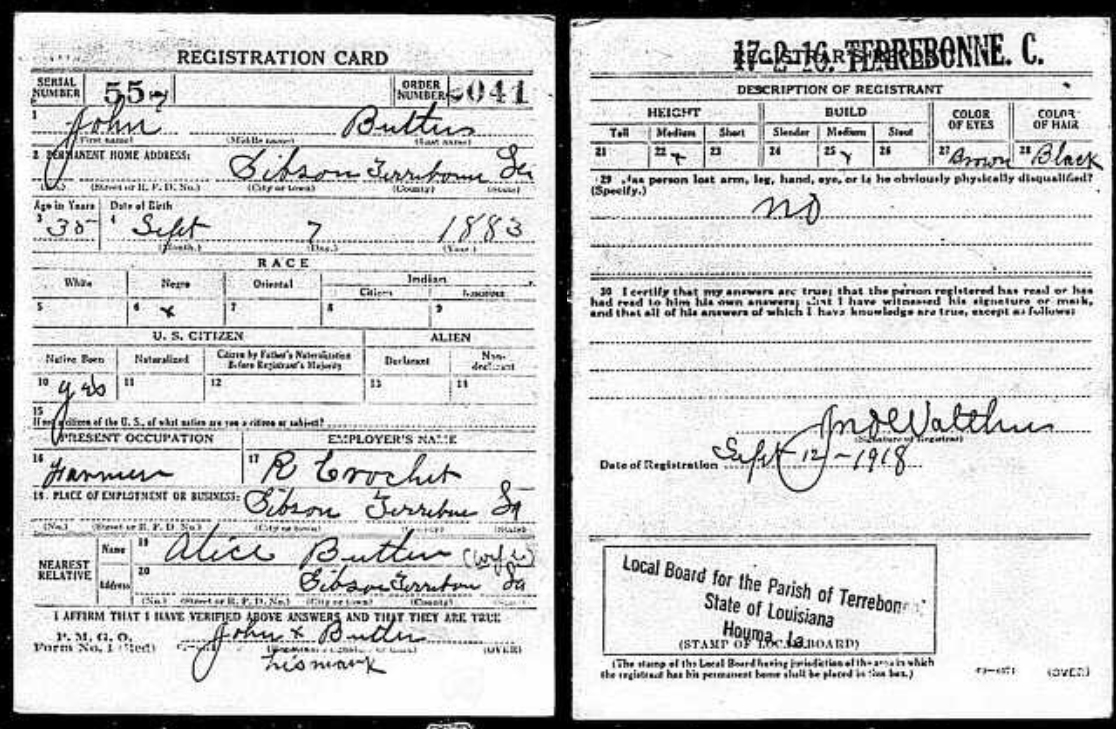 REGISTRATION CARD
SERIAL NUMBER 557 ORDER NUMBER 041
1 John Butler
(First name) (Middle name) (Last name)
2 PERMANENT HOME ADDRESS: Gibson Terrebonne La
(No.) (Street or R. F. D. No.) (City or town) (County) (State)
Age in Years Date of Birth
3 35 4 Sept 7 1883
(Month.) (Day.) (Year.)
RACE
White Negro Oriental Indian
Citizen
5 6 x 7 8 9
U. S. CITIZEN ALIEN
Native Born Naturalized Citizen by Father's Naturalization Before Registrant's Majority Declarant Non-declarant
10 yes 11 12 13 14
15
If not a citizen of the U. S., of what nation are you a citizen or subject?
PRESENT OCCUPATION EMPLOYER'S NAME
16 Farmer 17 R Crochet
18 PLACE OF EMPLOYMENT OR BUSINESS: Gibson Terrebone La
(No.) (Street or R. F. D. No.) (City or town) (County) (State)
NEAREST RELATIVE Name 19 Alice Butler (wife)
Address 20 Gibson Terrebon La
(No.) (Street or R. F. D. No.) (City or town) (County) (State)
I AFFIRM THAT I HAVE VERIFIED ABOVE ANSWERS AND THAT THEY ARE TRUE
P. M. G. O.
Form No. 1 (Red) John x Butler (OVER)
his mark
REGISTRAR'S 17-2-16. TERREBONNE. C.
DESCRIPTION OF REGISTRANT
HEIGHT BUILD COLOR OF EYES COLOR OF HAIR
Tall Medium Short Slender Medium Stout
21 22 x 23 24 25 x 26 27 Brown 28 Black
29 Has person lost arm, leg, hand, eye, or is he obviously physically disqualified?
(Specify.)
no
30 I certify that my answers are true; that the person registered has read or has
had read to him his own answers; that I have witnessed his signature or mark,
and that all of his answers of which I have knowledge are true, except as follows:
(Signature of Registrar)
Date of Registration Sept 12 - 1918
Local Board for the Parish of Terrebonne
State of Louisiana
Houma, La.
(STAMP OF LOCAL BOARD)
(The stamp of the Local Board having jurisdiction of the area in which
the registrant has his permanent home shall be placed in this box.)
(OVER)